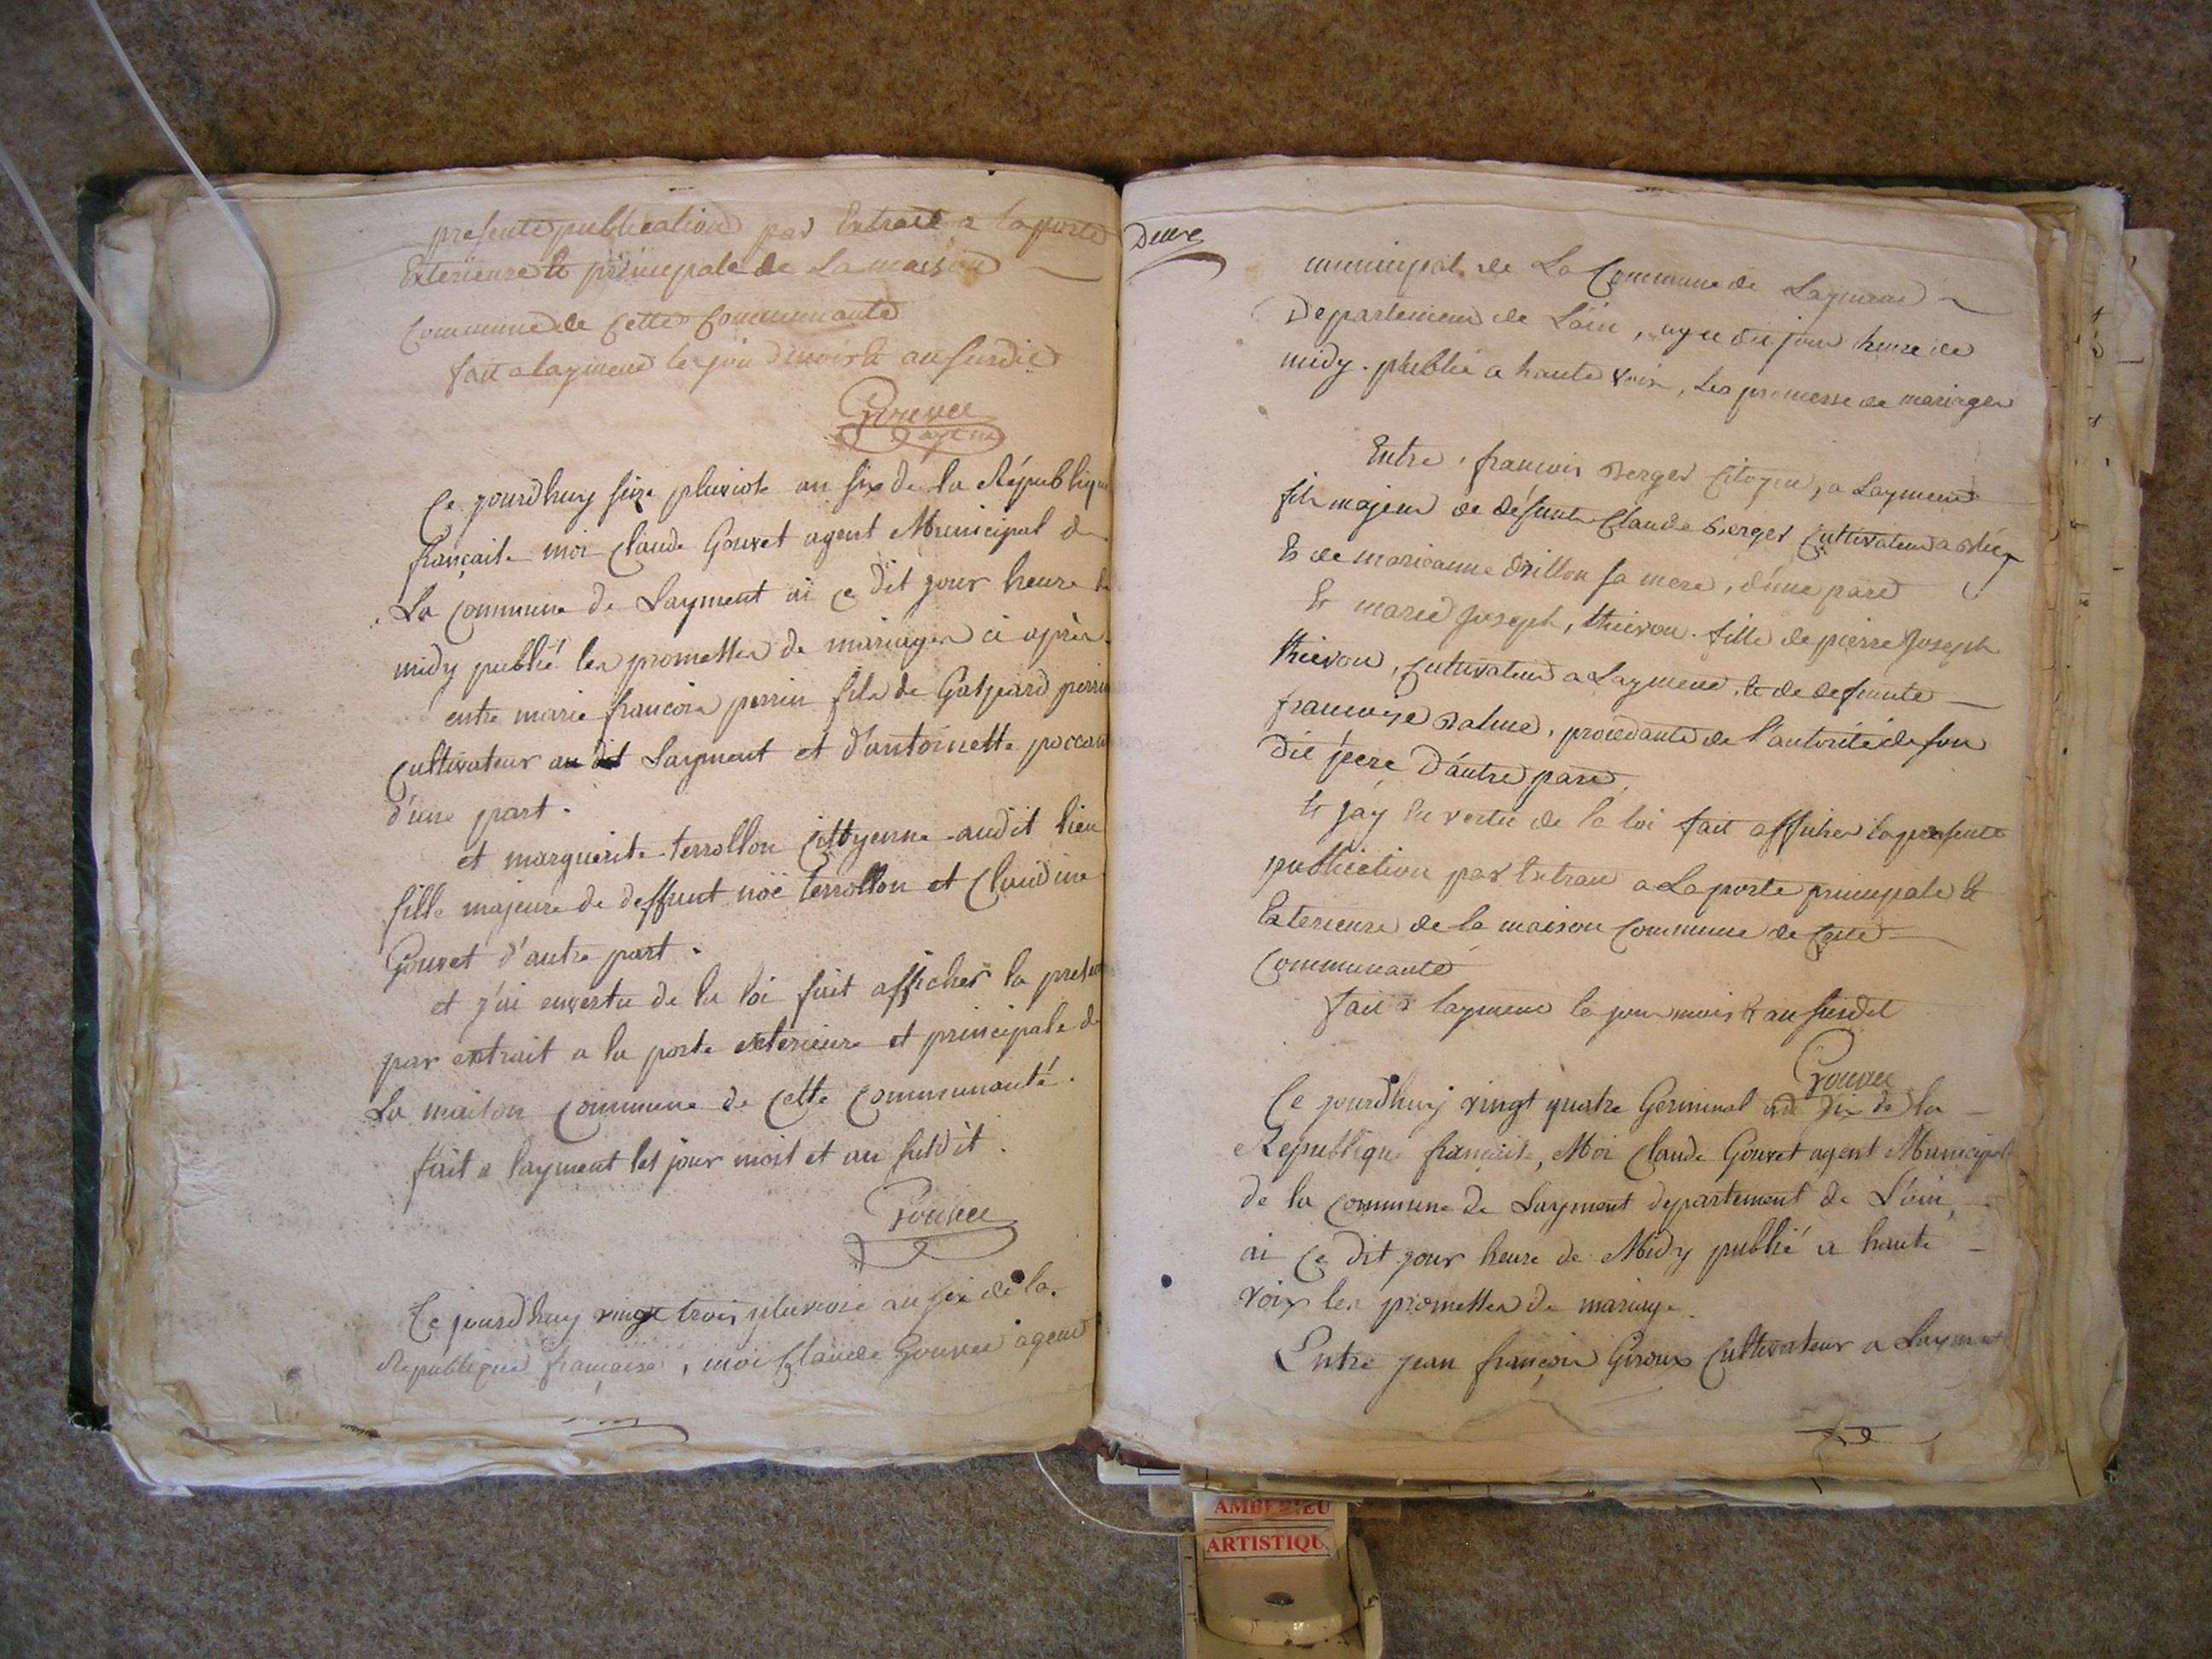 presente publication par Extrait a la porte
Exterieure et principale de La maison
Commune de Cette Communauté
fait a layment les jour mois et an susdit
Gouvet
agent
Ce jourdhuy seize pluviose an six de la République
française moi Claude Gouvet agent Municipal de
La commune de Layment ai ce dit jour heure de
midy publié les promesses de mariages ci après
entre marie françois perrin fils de Gaspard perrin
Cultivateur au dit Layment et d'antoinette
d'une part.
et marguerite terrollon Cittoyenne audit lieu
fille majeure de deffunt noë terrollon et Claudine
Gouvet d'autre part.
et j'ai en vertu de la loi fait afficher la presente
par extrait a la porte exterieure et principale de
La maison commune de Cette Communauté.
fait a layment les jour mois et an susdit.
Gouvet
Ce jourdhuy vingt trois pluviose an six de la
Republique française, moi Claude Gouvet agent
Deuxe
municipal de La Commune de Layment
Departement de Lain, ay ce dit jour heure de
midy publié a haute voix, Les promesse de mariages
Entre françois Berger Citoyen, a Layment
fils majeur de défunt Claude Berger Cultivateur a
Et de marieanne Drillon sa mere, d'une part
Et marie Joseph, thievon fille de pierre Joseph
thievon, Cultivateur a Layment, et de defunte
françoise Balme, procedante de l'autorité de son
Dit pere D'autre part,
Et j'ay En vertu de la loi fait afficher la presente
publiction par Extrait a La porte principale Et
Exterieure de la maison Commune de Cette
Communauté
fait a layment les jour mois Et an susdit
Gouvet
Ce jourdhuy vingt quatre Germinal six de la
Republique française, Moi Claude Gouvet agent Municipal
de la commune de Layment departement de L'ain,
ai Ce dit jour heure de Midy publié a haute
voix les promesses de mariage.
Entre jean françois Giroux Cultivateur a Layment
AMBERIEU
ARTISTIQU